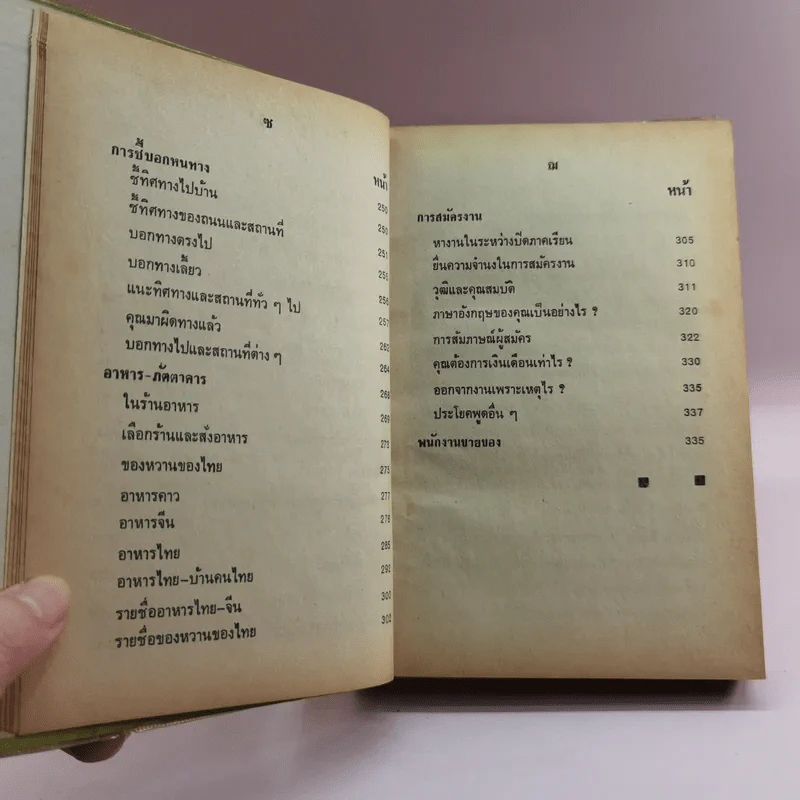 ซ
หน้า
การชี้บอกหนทาง 250
ชี้ทิศทางไปบ้าน 250
ชี้ทิศทางของถนนและสถานที่ 251
บอกทางตรงไป 255
บอกทางเลี้ยว 256
แนะทิศทางและสถานที่ทั่ว ๆ ไป 257
คุณมาผิดทางแล้ว 262
บอกทางไปและสถานที่ต่าง ๆ 264
อาหาร-ภัตตาคาร 268
ในร้านอาหาร 269
เลือกร้านและสั่งอาหาร 273
ของหวานของไทย 275
อาหารคาว 277
อาหารจีน 278
อาหารไทย 285
อาหารไทย-บ้านคนไทย 292
รายชื่ออาหารไทย-จีน 300
รายชื่อของหวานของไทย 302
ฌ
หน้า
การสมัครงาน
หางานในระหว่างปิดภาคเรียน 305
ยื่นความจำนงในการสมัครงาน 310
วุฒิและคุณสมบัติ 311
ภาษาอังกฤษของคุณเป็นอย่างไร ? 320
การสัมภาษณ์ผู้สมัคร 322
คุณต้องการเงินเดือนเท่าไร ? 330
ออกจากงานเพราะเหตุไร ? 335
ประโยคพูดอื่น ๆ 337
พนักงานขายของ 335